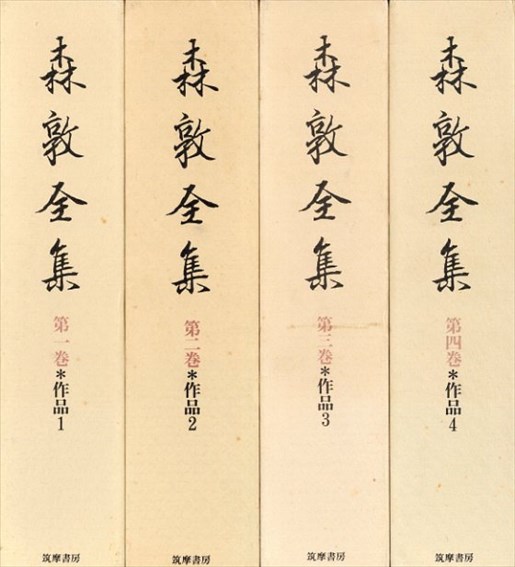 森敦全集
第一巻*作品1
筑摩書房
森敦全集
第二巻*作品2
筑摩書房
森敦全集
第三巻*作品3
筑摩書房
森敦全集
第四巻*作品4
筑摩書房